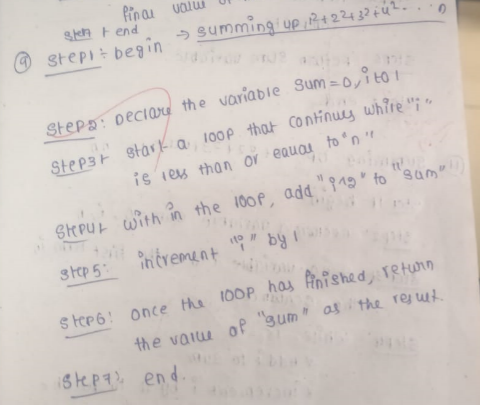 final value of
step end
→ summing up, 1²+2²+3²+4².... n
⑨ step1: begin
step2: Declare the variable sum=0, i to 1
step3: start a loop that continues while "i"
is less than or equal to "n"
step4: with in the loop, add "i^2" to "sum"
step5: increment "i" by 1
step6: once the loop has finished, return
the value of "sum" as the result.
step7: end.